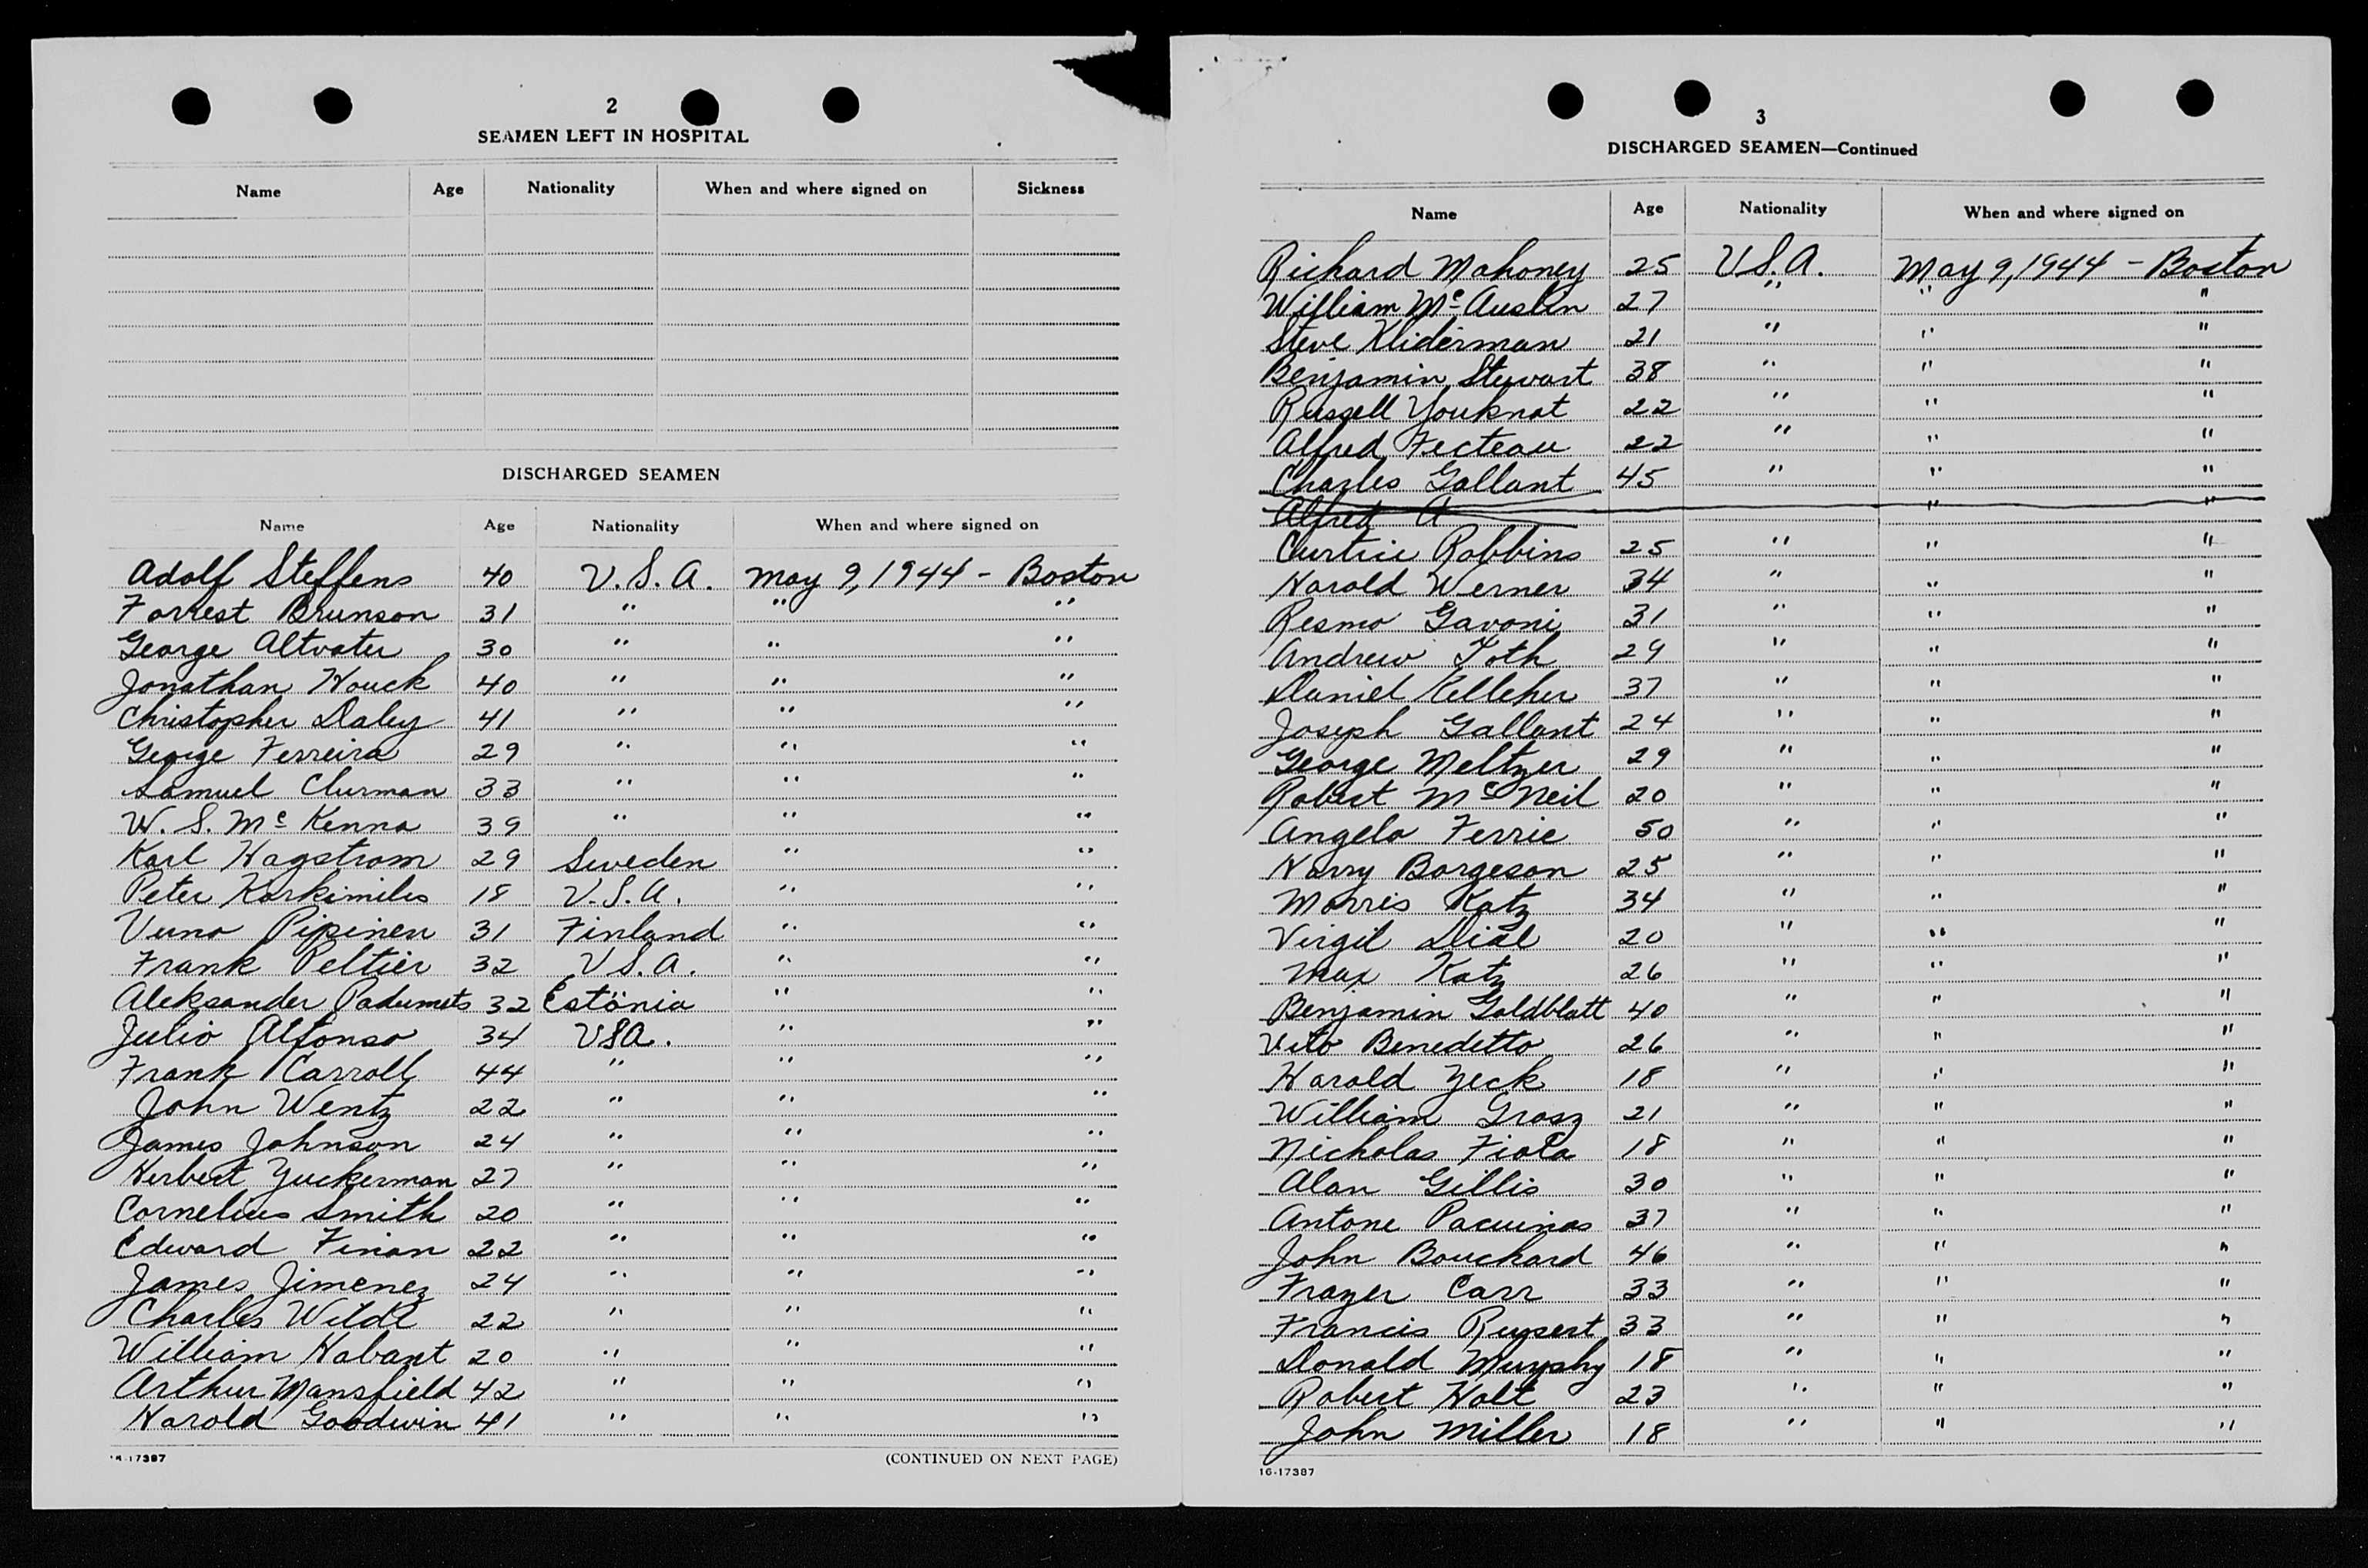 2
SEAMEN LEFT IN HOSPITAL
Name Age Nationality When and where signed on Sickness
DISCHARGED SEAMEN
Name Age Nationality When and where signed on
Adolf Steffens 40 U.S.A. May 9, 1944 - Boston
Forrest Brunson 31 " " "
George Altvater 30 " " "
Jonathan Houck 40 " " "
Christopher Daley 41 " " "
George Ferreira 29 " " "
Samuel Clurman 33 " " "
W. S. McKenna 39 " " "
Karl Hagstrom 29 Sweden " "
Peter Korkimilis 18 U.S.A. " "
Uuno Pipinen 31 Finland " "
Frank Peltier 32 U.S.A. " "
Aleksander Padumets 32 Estonia " "
Julio Alfonso 34 USA. " "
Frank Carroll 44 " " "
John Wentz 22 " " "
James Johnson 24 " " "
Herbert Zuckerman 27 " " "
Cornelius Smith 20 " " "
Edward Finan 22 " " "
James Jimenez 24 " " "
Charles Wildt 22 " " "
William Habant 20 " " "
Arthur Mansfield 42 " " "
Harold Goodwin 41 " " "
16-17387 (CONTINUED ON NEXT PAGE)
3
DISCHARGED SEAMEN—Continued
Name Age Nationality When and where signed on
Richard Mahoney 25 U.S.A. May 9, 1944 - Boston
William McAuslin 27 " " "
Steve Kliderman 21 " " "
Benjamin Stewart 38 " " "
Russell Youknat 22 " " "
Alfred Fecteau 22 " " "
Charles Gallant 45 " " "
Alfred A " "
Curtice Robbins 25 " " "
Harold Werner 34 " " "
Resmo Gavoni 31 " " "
Andrew Toth 29 " " "
Daniel Kelleher 37 " " "
Joseph Gallant 24 " " "
George Meltzer 29 " " "
Robert McNeil 20 " " "
Angelo Ferrie 50 " " "
Harry Borgeson 25 " " "
Morris Katz 34 " " "
Virgil Dial 20 " " "
Max Katz 26 " " "
Benjamin Goldblatt 40 " " "
Vito Benedetto 26 " " "
Harold Zeck 18 " " "
William Grosz 21 " " "
Nicholas Fiola 18 " " "
Alan Gillis 30 " " "
Antone Pacuinas 37 " " "
John Bouchard 46 " " "
Frazer Carr 33 " " "
Francis Rupert 33 " " "
Donald Murphy 18 " " "
Robert Holt 23 " " "
John Miller 18 " " "
16-17387